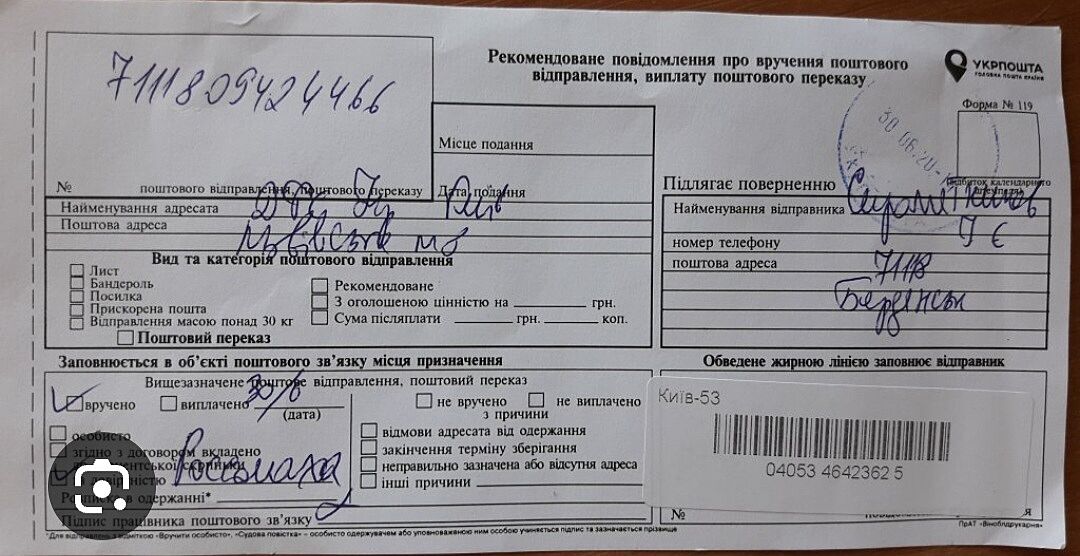 7111809424466
№ поштового відправлення, поштового переказу
Місце подання
Дата подання
Рекомендоване повідомлення про вручення поштового
відправлення, виплату поштового переказу
УКРПОШТА
ГОЛОВНА ПОШТА КРАЇНИ
Форма № 119
30.06.20
Відбиток календарного
штемпеля
Підлягає поверненню
Найменування адресата
Поштова адреса
Львівська
Вид та категорія поштового відправлення
Лист
Бандероль
Посилка
Прискорена пошта
Відправлення масою понад 30 кг
Поштовий переказ
Рекомендоване
З оголошеною цінністю на грн.
Сума післяплати грн. коп.
Найменування відправника
номер телефону
поштова адреса 71118
Бердянськ
Заповнюється в об'єкті поштового зв'язку місця призначення
Вищезазначене поштове відправлення, поштовий переказ
вручено
виплачено 30/6
(дата)
не вручено
не виплачено
з причини
особисто
згідно з договором вкладено
Розписка в одержанні*
Підпис працівника поштового зв'язку
відмови адресата від одержання
закінчення терміну зберігання
неправильно зазначена або відсутня адреса
інші причини
Обведене жирною лінією заповнює відправник
Київ-53
04053 4642362 5
№
*Для відправлень з відміткою «Вручити особисто», «Судова повістка» – особисто одержувачем або уповноваженою ним особою учиняється підпис та зазначається прізвище
ПрАТ «Віноблдрукарня»